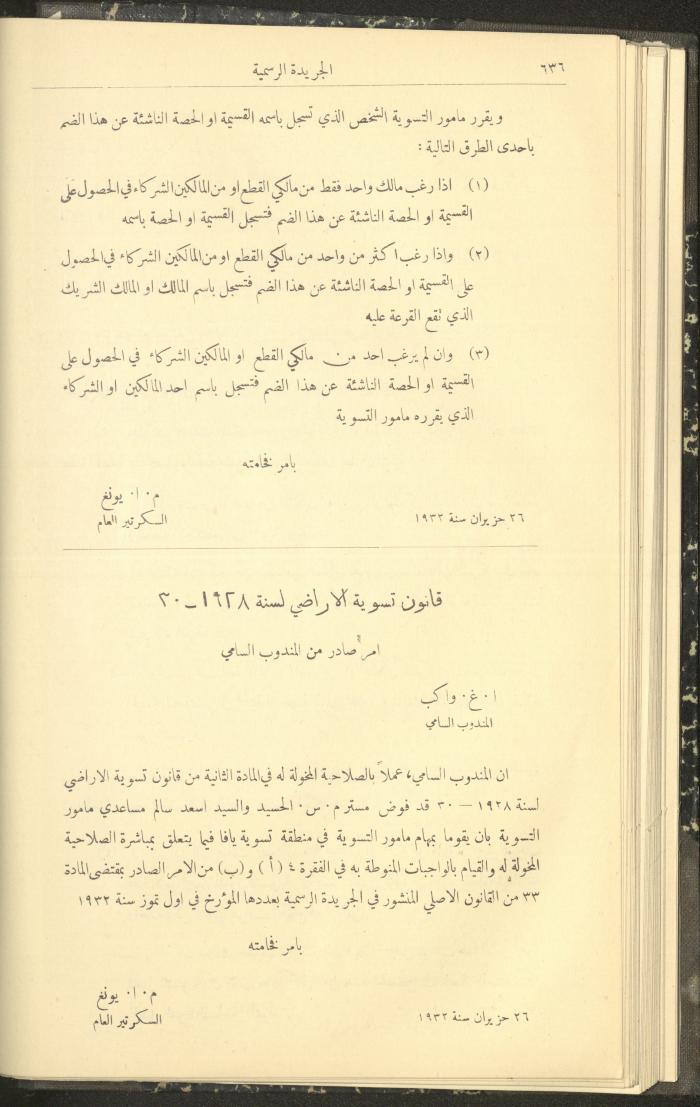 ٦٣٦
الجريدة الرسمية
ويقرر مامور التسوية الشخص الذي تسجل باسمه القسيمة او الحصة الناشئة عن هذا الضم
باحدى الطرق التالية :
(١) اذا رغب مالك واحد فقط من مالكي القطع او من المالكين الشركاء في الحصول على
القسيمة او الحصة الناشئة عن هذا الضم فتسجل القسيمة او الحصة باسمه
(٢) واذا رغب اكثر من واحد من مالكي القطع او من المالكين الشركاء في الحصول
على القسيمة او الحصة الناشئة عن هذا الضم فتسجل باسم المالك او المالك الشريك
الذي تقع القرعة عليه
(٣) وان لم يرغب احد من مالكي القطع او المالكين الشركاء في الحصول على
القسيمة او الحصة الناشئة عن هذا الضم فتسجل باسم احد المالكين او الشركاء
الذي يقرره مامور التسوية
بامر فخامته
م٠ ا٠ يونغ
٢٦ حزيران سنة ١٩٣٢ السكرتير العام
قانون تسوية الاراضي لسنة ١٩٢٨ـ٣٠
امر صادر من المندوب السامي
ا٠ غ٠ واكب
المندوب السامي
ان المندوب السامي، عملاً بالصلاحية المخولة له في المادة الثانية من قانون تسوية الاراضي
لسنة ١٩٢٨ — ٣٠ قد فوض مستر م٠ س٠ الحسيد والسيد اسعد سالم مساعدي مامور
التسوية بان يقوما بمهام مامور التسوية في منطقة تسوية يافا فيما يتعلق بمباشرة الصلاحية
المخولة له والقيام بالواجبات المنوطة به في الفقرة ٤ (أ) و(ب) من الامر الصادر بمقتضى المادة
٣٣ من القانون الاصلي المنشور في الجريدة الرسمية بعددها المؤرخ في اول تموز سنة ١٩٣٢
بامر فخامته
م٠ ا٠ يونغ
٢٦ حزيران سنة ١٩٣٢ السكرتير العام